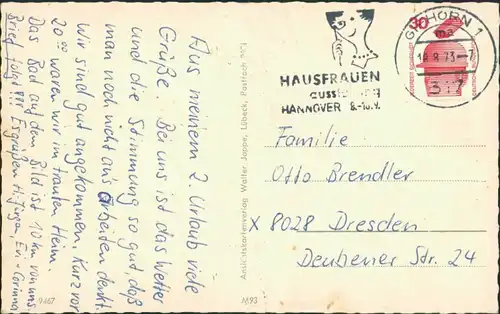 Aus meinem 2. Urlaub viele
Grüße. Bei uns ist das Wetter
und die Stimmung so gut, daß
man noch nicht ans arbeiten denkt.
Wir sind gut angekommen. Kurz vor
20⁰⁰ waren wir im trauten Heim.
Das Bad auf dem Bild ist 10 km von uns.
Brief folgt!!! Es grüßen H. Jürgen, Evi, Corinna
9467
M93
Ansichtskartenverlag Walter Joppe, Lübeck, Postfach 2013
HAUSFRAUEN
AUSSTELLUNG
HANNOVER 8.-16.9.
GIFHORN 1
ma
14.8.73-7
317
Familie
Otto Brendler
X 8028 Dresden
Deubener Str. 24